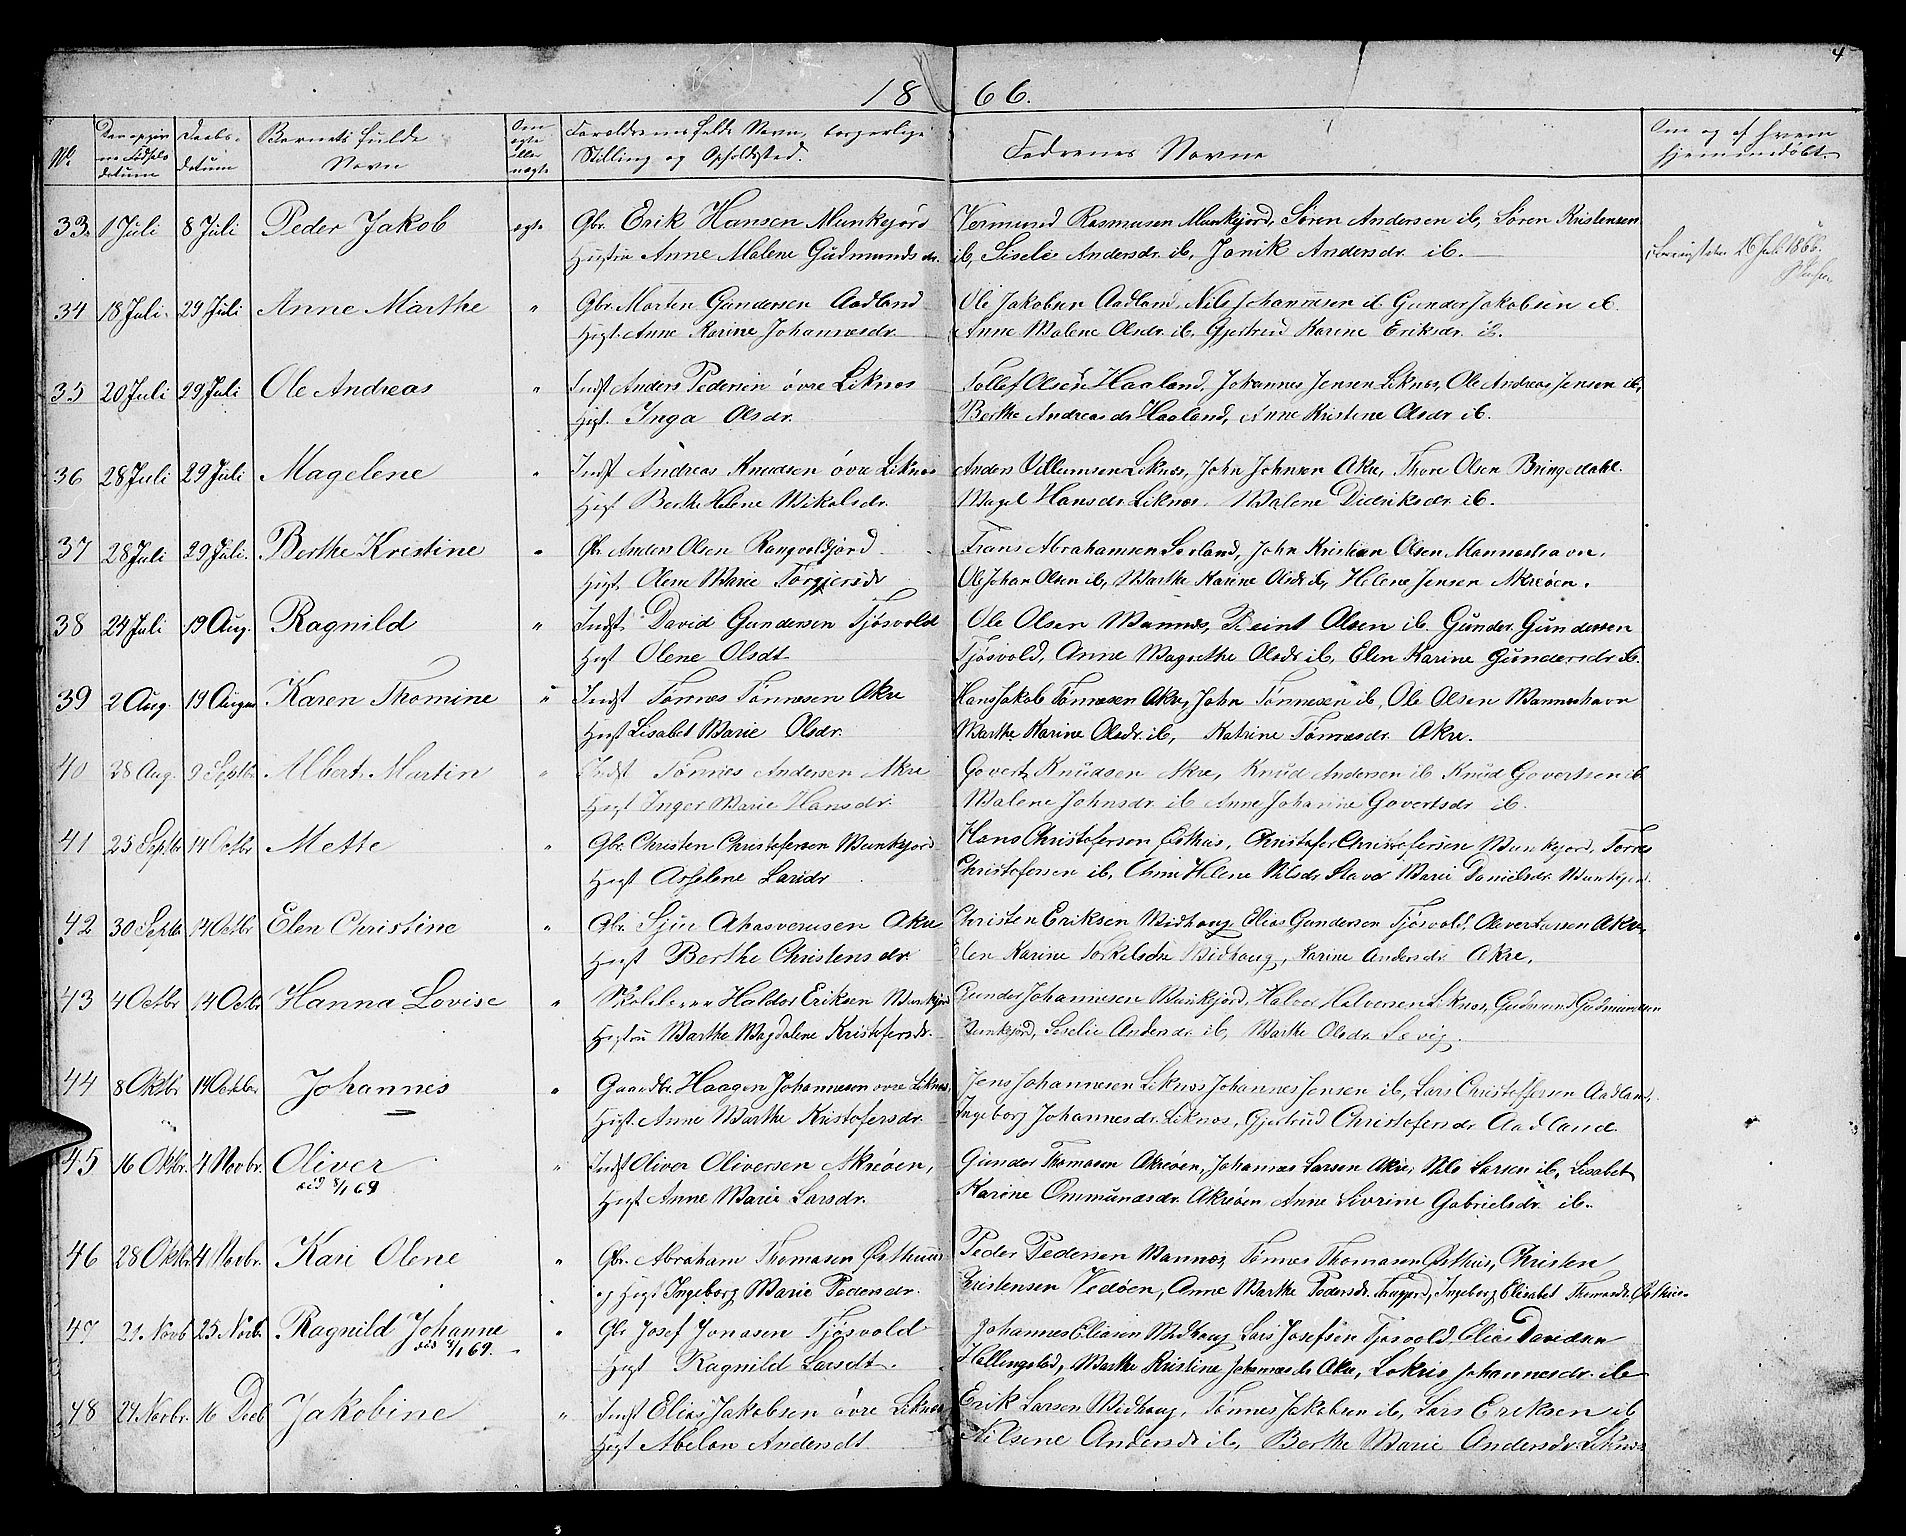 4
1866.
No.
Barnets fulde
Navn
Forældrenes fulde Navn, borgerlige
Stilling og Opholdsted.
Fadrenes Navne
Om og af hvem
hjemmedøbt.
33. 1 Juli 8 Juli Peder Jakob egte Gbr. Erik Hansen Munkejord Vermund Rasmusen Munkejord, Søren Andersen ib, Søren Kristensen
Hustru Anne Malene Gudmundsdr. ib, Siselie Andersdr. ib, Janik Andersdr. ib.
34 18 Juli 29 Juli Anne Marthe " Gbr. Morten Gundersen Aadland Ole Jakobsen Aadland, Nils Johannesen ib. Gunder Jakobsen ib.
Hust. Anne Karine Johannesdr. Anne Malene Olsdr. ib, Gjertrud Karine Eriksdr. ib.
35 20 Juli 29 Juli Ole Andreas " Indst Anders Pedersen øvre Liknes Tollef Olsen Haaland, Johannes Jensen Liknes, Ole Andreas Jensen ib,
Hust. Inga Olsdr. Berthe Andreasdr Haaland, Anne Kristine Olsdr ib.
36 28 Juli 29 Juli Magelene " Indst Andreas Knudsen øvre Liknes Anders Villumsen Liknes, John Johnsen Akre, Thore Olsen Bringedahl.
Hust Berthe Helene Mikalsdr. Magel Hansdr. Liknes. Malene Didriksdr. ib.
37 28 Juli 29 Juli. Berthe Kristine " Gbr Anders Olsen Rangvoldjord Frans Abrahamsen Sørland, John Kristian Olsen Manneshavn.
Hust. Olene Marie Torgiersdr Ole Johan Olsen ib, Marthe Karine Olsdr ib, Helene Jensen Akreøen.
38 24 Juli 19 Aug. Ragnild " Indst. David Gundersen Tjøsvold Ole Olsen Mannes, Teint Olsen ib. Gunder Gundersen
Hust Olene Olsdt Tjøsvold, Anne Magrethe Olsdr ib, Elen Karine Gundersdr ib.
39 2 Aug. 19 August Karen Thomine " Indst Tønnes Tønnesen Akre Hans Jakob Tønnesen Akre, John Tønnesen ib, Ole Olsen Manneshavn
Hust Lisabet Marie Olsdr. Marthe Karine Olsdr. ib, Katrine Tønnesdr. Akre.
40 28 Aug. 9 Septbr Albert Martin " Indst Tønnes Andersen Akre Govert Knudsen Akre, Knud Andersen ib Knud Govertsen ib
Hust Inger Marie Hansdr. Malene Johnsdr. ib Anne Johanne Govertsdr ib.
41 25 Septbr 14 Octbr Mette " Gbr. Christen Christofersen Munkejord Hans Christofersen Østhus, Christofer Christofersen Munkejord, Tørres
Hust Asselene Larsdr Christofersen ib, Helene Nilsdr Stava Marie Danielsdr. Munkejord
42 30 Septbr 14 Octbr Elen Christine " Gbr. Sjur Ahasverusen Akre Christen Eriksen Midhaug Elias Gundersen Tjøsvold, Akre,
Hust Berthe Christensdr. Elen Karine Torkelsdr Midhaug, Karine Andersdr. Akre.
43 4 Octbr 14 Octbr. Hanna Lovise " Haldor Eriksen Munkejord Gunder Johannesen Munkejord, Halvor Halvorsen Liknes, Gudmund Gudmundsen
Hustru Marthe Magdalene Kristofersdr. Munkejord, Siselie Andersdr. ib, Marthe Olsdr. Sævig.
44 8 Oktbr 14 Octbr Johannes " Gaardbr. Haagen Johannesen øvre Liknes, Jens Johannesen Liknes Johannes Jensen ib, Lars Christoffersen Aadland,
Hust. Anne Marthe Kristofersdr. Ingeborg Johannesdr. Liknes, Gjertrud Christofersdr. Aadland.
45 16 Oktbr. 4 Novbr. Oliver " Indst Oliver Oliversen Akreøen, Gunder Thomasen Akreøen, Johannes Larsen Akre, Nils Larsen ib, Lisabet
død 8/1 69 Hust Anne Marie Larsdr. Karine Ommundsdr. Akreøen Anne Sivrine Gabrielsdr. ib.
46 28 Oktbr. 4 Novbr. Kari Olene " Gbr. Abraham Thomasen Østhuus Peder Pedersen Mannes, Tønnes Thomasen Østhus, Christen
og Hust Ingeborg Marie Pedersdr. Kristensen Vedøen, Anne Marthe Pedersdr. Ingeborg Elisabet Thomasdr. Østhus.
47 21. Novb 25 Novb. Ragnild Johanne " Gbr Josef Jonasen Tjøsvold Johannes Eliasen Midhaug Lars Josefsen Tjøsvold, Elias Davidsen
Hust Ragnild Larsdt. Hellingstad, Marthe Kristine Johannesdr Akre, Johannesdr. ib
48 24 Novbr. 16 Decb Jakobine " Indst Elias Jakobsen øvre Liknes Erik Larsen Midhaug, Tønnes Jakobsen ib, Lars Eriksen ib
Hust Abelon Andersdt. Nilsine Andersdr ib, Berthe Marie Andersdr. Liknes